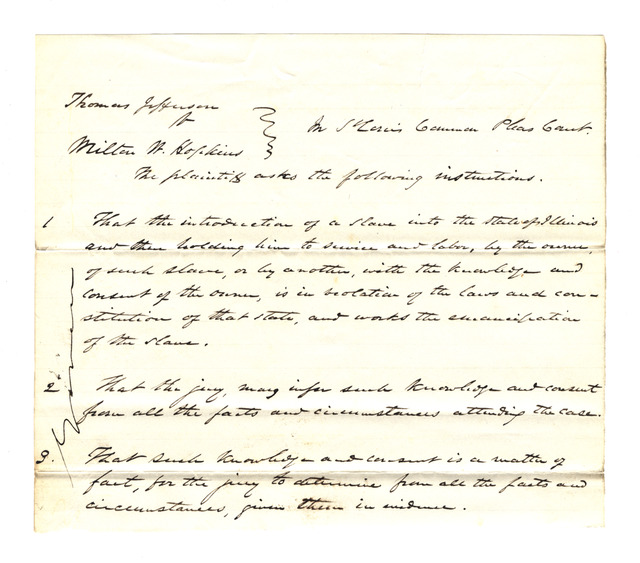 Thomas Jefferson
v
Milton W. Hopkins
In St Louis Common Pleas Court
The plaintiff asks the following instructions.
1 That the introduction of a slave into the State of Illinois
and then holding him to service and labor, by the owner,
of such slave, or by another, with the knowledge and
consent of the owner, is in violation of the laws and con-
stitution of that State, and works the emancipation
of the slave.
2 That the jury, may infer such knowledge and consent
from all the facts and circumstances attending the case.
3. That such knowledge and consent is a matter of
fact, for the jury to determine from all the facts and
circumstances, given them in evidence.